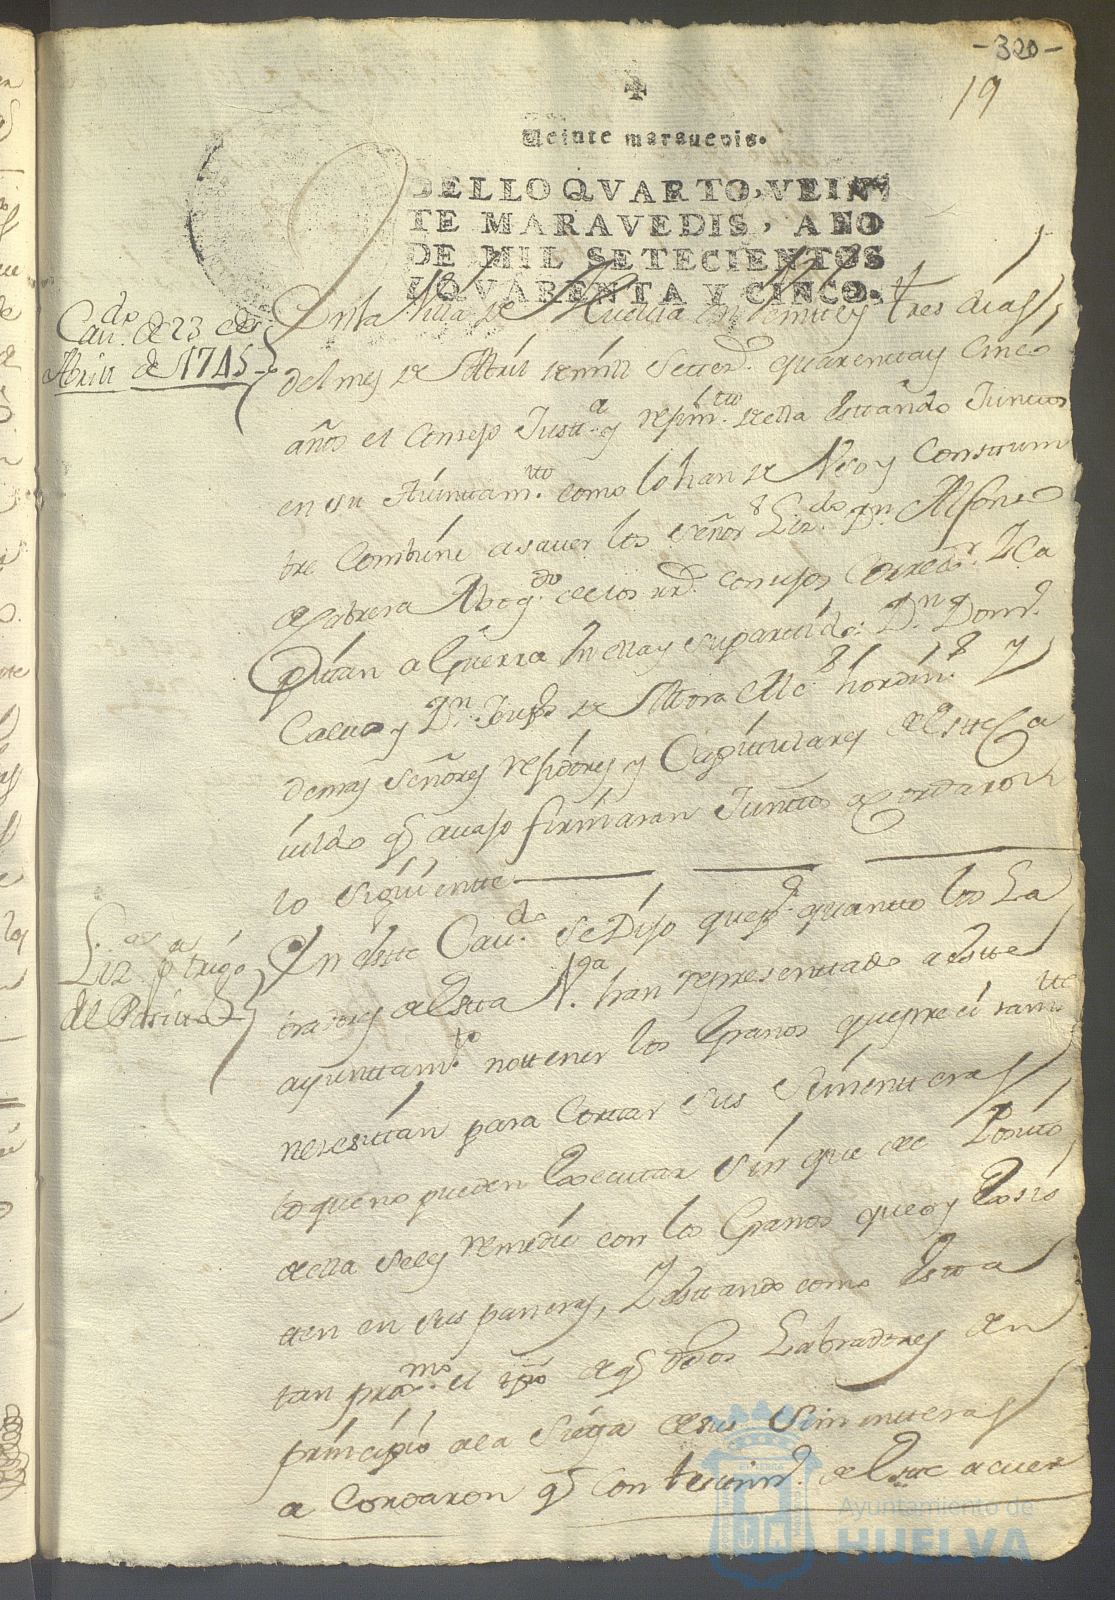 -320-
19
Veinte maravedis.
SELLO QVARTO, VEIN
TE MARAVEDIS, AÑO
DE MIL SETECIENTOS
Y QVARENTA Y CINCO.
Cau.do de 23 de
Abrill de 1745
En la Villa de Huelva en Veinte y tres dias
del mes de Abril de mill Setted.s quarenta y Cinco
años el Consejo Justt.a y rejim.tto de ella esttando Junttos
en su Aiuntam.tto como lo han de Vso y Costtum
bre Combiene a sauer los Señor.s Liz.do D.n Alfonso
de Cabrera Abog.do de los rr.s consejos Correx.or y Ca
pitan a Guerra en ella y su partido: D.n Dom.o
y D.n de Mora Alc.s hordin.s y
demas Señores rejidores y Capitulares de estte Ca
uildo q auajo firmaran Junttos acordaron
lo Siguiente
Liz.a p.a trigo
del Positto
En estte Cau.do se Dijo que p.r quantto los La
bradores de estta V.a han representtado a estte
ayunttam.to no ttener los Granos que presisam.tte
nesesittan para Cortar sus Simentteras
lo que no pueden Executar sin que del Positto
de ella se les remedie con los Granos que oy Exsis
ten en sus paneras, y esttando como estta
tan prox.mo el tpo de q dhos Labradores den
principio a la Siega de sus Simentteras
acordaron q con testtim.o de estte acuer
Ayuntamiento de
HUELVA